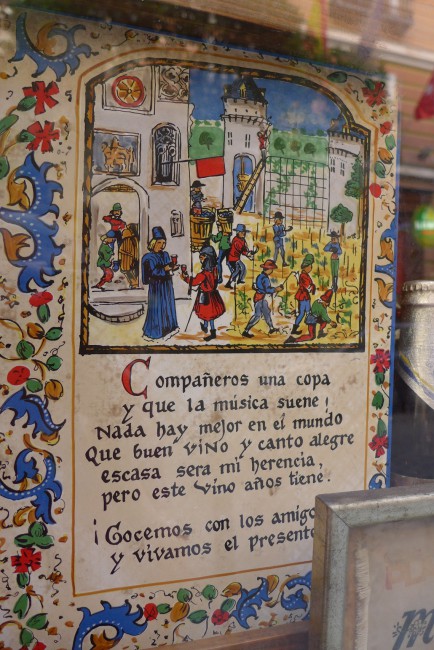 Compañeros una copa
y que la música suene!
Nada hay mejor en el mundo
Que buen vino y canto alegre
escasa sera mi herencia,
pero este vino años tiene.
¡Gocemos con los amigo
y vivamos el presente